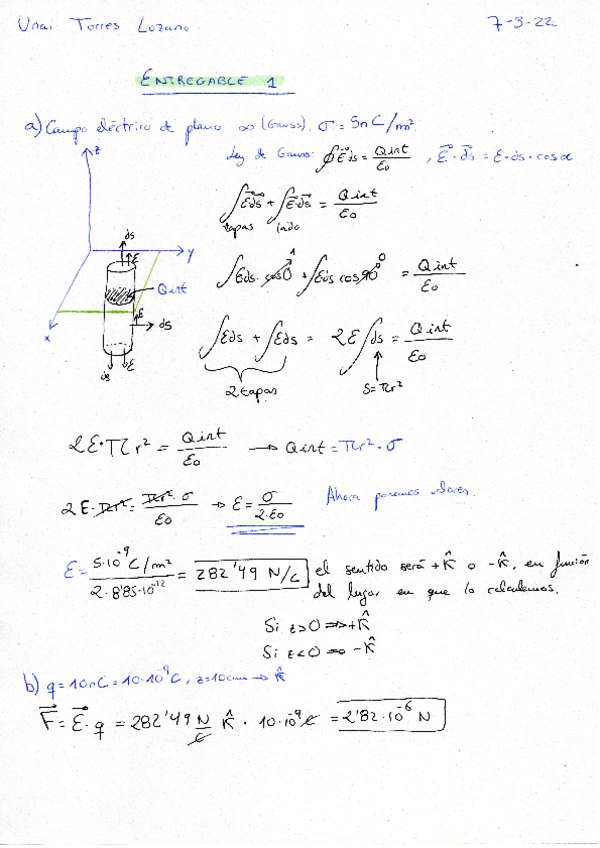 Unai Torres Lozano 7-3-22
ENTREGABLE 1
a) Campo eléctrico de plano ∞ (Gauss). σ = 5nC/m².
Ley de Gauss: ∮E⃗ds = Qint/ε₀ , E⃗·ds⃗ = E·ds·cosα
∫E⃗ds⃗ + ∫E⃗·ds⃗ = Qint/ε₀
tapas lado
∫Eds·cos0 + ∫Eds cos90° = Qint/ε₀
1 0
z y x
ds E Qint E ds ds E
∫Eds + ∫Eds = 2E∫ds = Qint/ε₀
2 tapas S=πr²
2E·πr² = Qint/ε₀ → Qint = πr²·σ
2E·πr² = πr²·σ/ε₀ → E = σ/2·ε₀ Ahora ponemos valores.
E = 5·10⁻⁹C/m²/2·8'85·10⁻¹² = 282'49 N/C el sentido será +k̂ o -k̂, en función
del lugar en que lo calculemos.
Si z>0 ⇒ +k̂
Si z<0 ⇒ -k̂
b) q = 10nC = 10·10⁻⁹C, z=10cm → k̂
F⃗ = E⃗·q = 282'49 N/C k̂ · 10·10⁻⁹C = 2'82·10⁻⁶ N